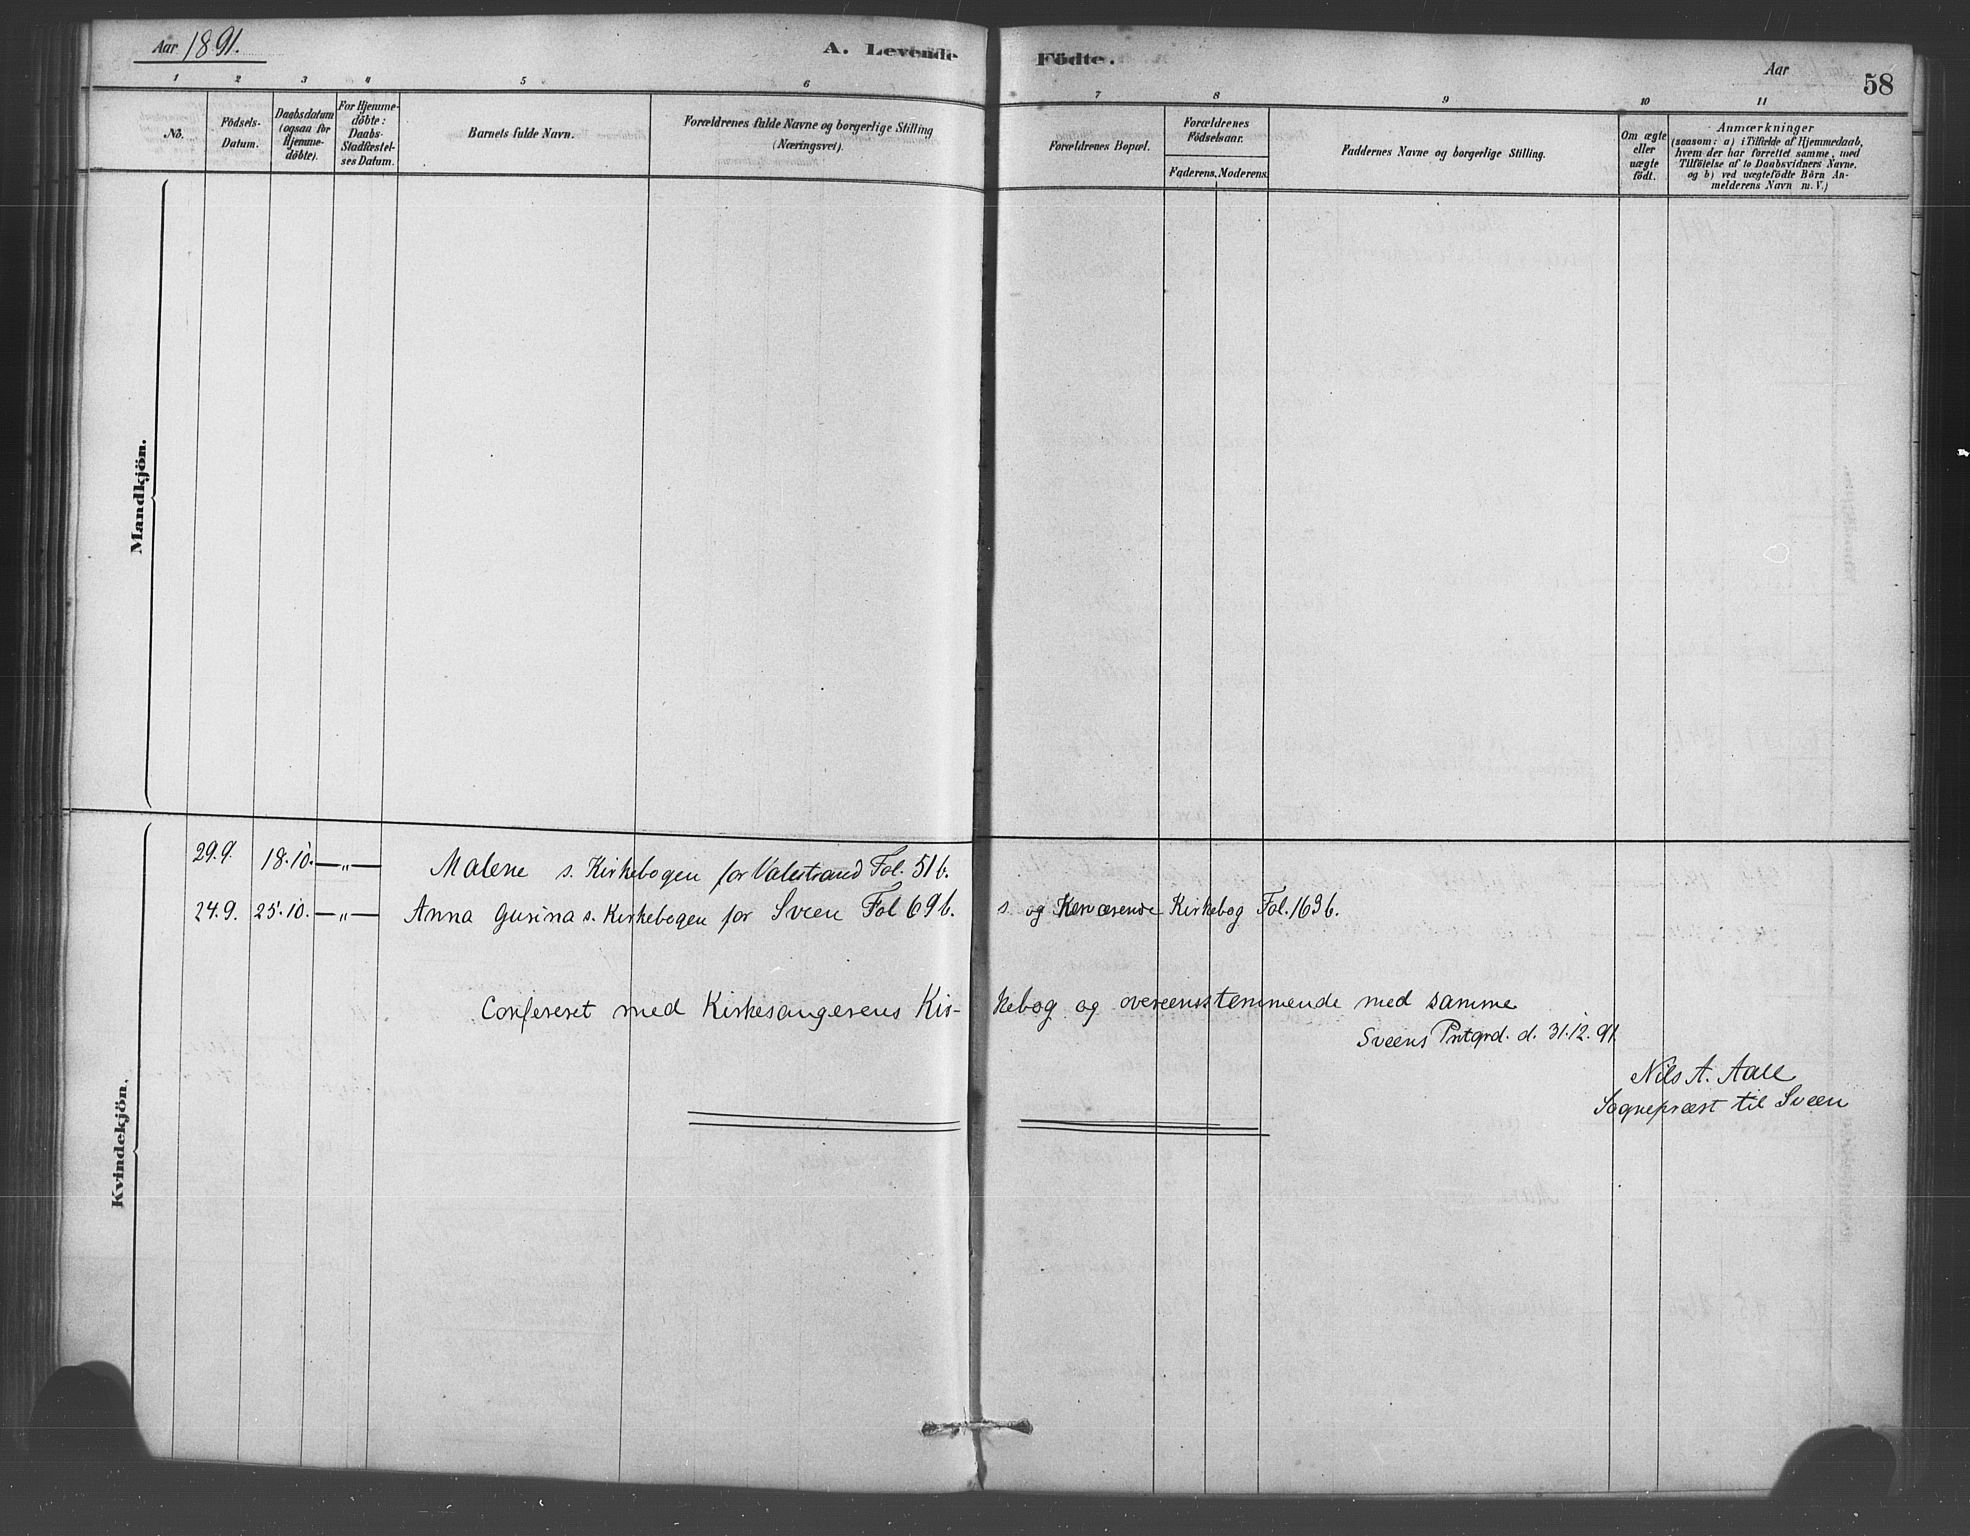 Aar 1891.
A. Levende Födte.
Aar
58
1 2 3 4 5 6 7 8 9 10 11
No.
Födsels-
Datum.
Daabsdatum
(ogsaa for
Hjemme-
döbte).
For Hjemme-
döbte:
Daabs-
Stadfæstel-
ses Datum.
Barnets fulde Navn.
Forældrenes fulde Navne og borgerlige Stilling
(Næringsvei).
Forældrenes Bopæl.
Forældrenes
Födselsaar.
Faderens. Moderens.
Faddernes Navne og borgerlige Stilling.
Om ægte
eller
uægte
födt.
Anmærkninger
(saasom: a) i Tilfælde af Hjemmedaab,
hvem der har forrettet samme, med
Tilföielse af to Daabsvidners Navne.
og b) ved uægtefödte Börn An-
melderens Navn m. V.)
Mandkjön.
Kvindekjön.
29.9. 18.10. — „ — Malene s. Kirkebogen for Valestrand Fol. 51 b.
24.9. 25.10. — „ — Anna Gusina s. Kirkebogen for Sveen Fol 69 b. s. og Kerværende Kirkebog Fol. 163 b.
Confereret med Kirkesangerens Kir- kebog og overeensstemmende med samme
Sveens Prstgrd. d. 31.12.91.
Nils A. Aall
Sognepræst til Sveen